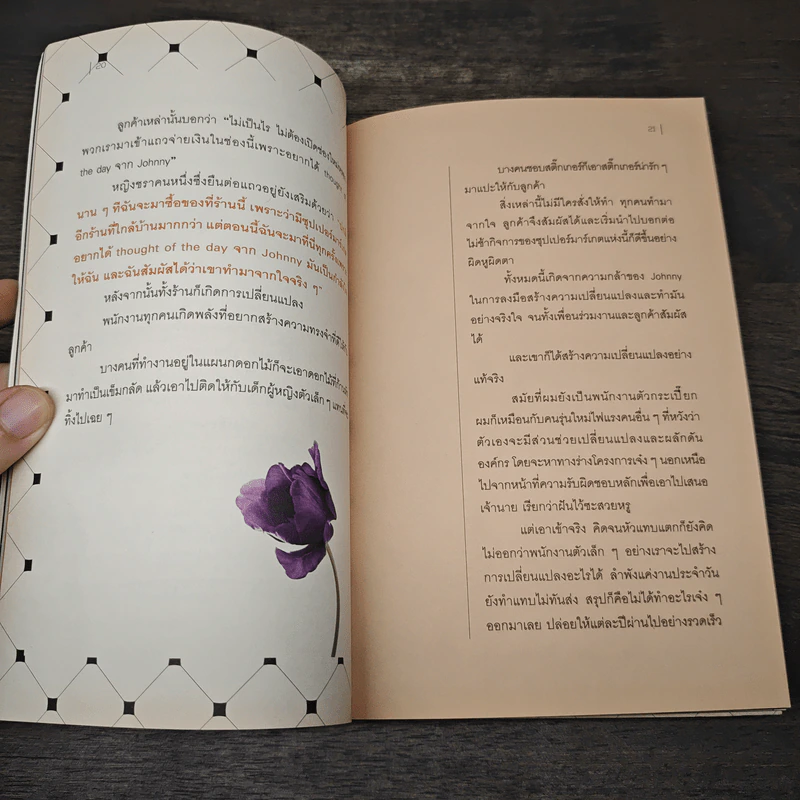 20
ลูกค้าเหล่านั้นบอกว่า “ไม่เป็นไร ไม่ต้องเปิดช่อง
พวกเรามาเข้าแถวจ่ายเงินในช่องนี้เพราะอยากได้ thought
the day จาก Johnny”
หญิงชราคนหนึ่งซึ่งยืนต่อแถวอยู่ยังเสริมด้วยว่า
นาน ๆ ทีฉันจะมาซื้อของที่ร้านนี้ เพราะว่ามีซุปเปอร์มาร์
อีกร้านที่ใกล้บ้านมากกว่า แต่ตอนนี้ฉันจะมาที่นี่ทุกครั้ง
อยากได้ thought of the day จาก Johnny มันเป็น
ให้ฉัน และฉันสัมผัสได้ว่าเขาทำมาจากใจจริง ๆ”
หลังจากนั้นทั้งร้านก็เกิดการเปลี่ยนแปลง
พนักงานทุกคนเกิดพลังที่อยากสร้างความทรงจำที่ดี
ลูกค้า
บางคนที่ทำงานอยู่ในแผนกดอกไม้ก็จะเอาดอกไม้
มาทำเป็นเข็มกลัด แล้วเอาไปติดให้กับเด็กผู้หญิงตัวเล็ก ๆ
ทิ้งไปเฉย ๆ
21
บางคนชอบสติ๊กเกอร์ก็เอาสติ๊กเกอร์น่ารัก ๆ
มาแปะให้กับลูกค้า
สิ่งเหล่านี้ไม่มีใครสั่งให้ทำ ทุกคนทำมา
จากใจ ลูกค้าจึงสัมผัสได้และเริ่มนำไปบอกต่อ
ไม่ช้ากิจการของซุปเปอร์มาร์เกตแห่งนี้ก็ดีขึ้นอย่าง
ผิดหูผิดตา
ทั้งหมดนี้เกิดจากความกล้าของ Johnny
ในการลงมือสร้างความเปลี่ยนแปลงและทำมัน
อย่างจริงใจ จนทั้งเพื่อนร่วมงานและลูกค้าสัมผัส
ได้
และเขาก็ได้สร้างความเปลี่ยนแปลงอย่าง
แท้จริง
สมัยที่ผมยังเป็นพนักงานตัวกระเปี๊ยก
ผมก็เหมือนกับคนรุ่นใหม่ไฟแรงคนอื่น ๆ ที่หวังว่า
ตัวเองจะมีส่วนช่วยเปลี่ยนแปลงและผลักดัน
องค์กร โดยจะหาทางร่างโครงการเจ๋ง ๆ นอกเหนือ
ไปจากหน้าที่ความรับผิดชอบหลักเพื่อเอาไปเสนอ
เจ้านาย เรียกว่าฝันไว้ซะสวยหรู
แต่เอาเข้าจริง คิดจนหัวแทบแตกก็ยังคิด
ไม่ออกว่าพนักงานตัวเล็ก ๆ อย่างเราจะไปสร้าง
การเปลี่ยนแปลงอะไรได้ ลำพังแค่งานประจำวัน
ยังทำแทบไม่ทันส่ง สรุปก็คือไม่ได้ทำอะไรเจ๋ง ๆ
ออกมาเลย ปล่อยให้แต่ละปีผ่านไปอย่างรวดเร็ว